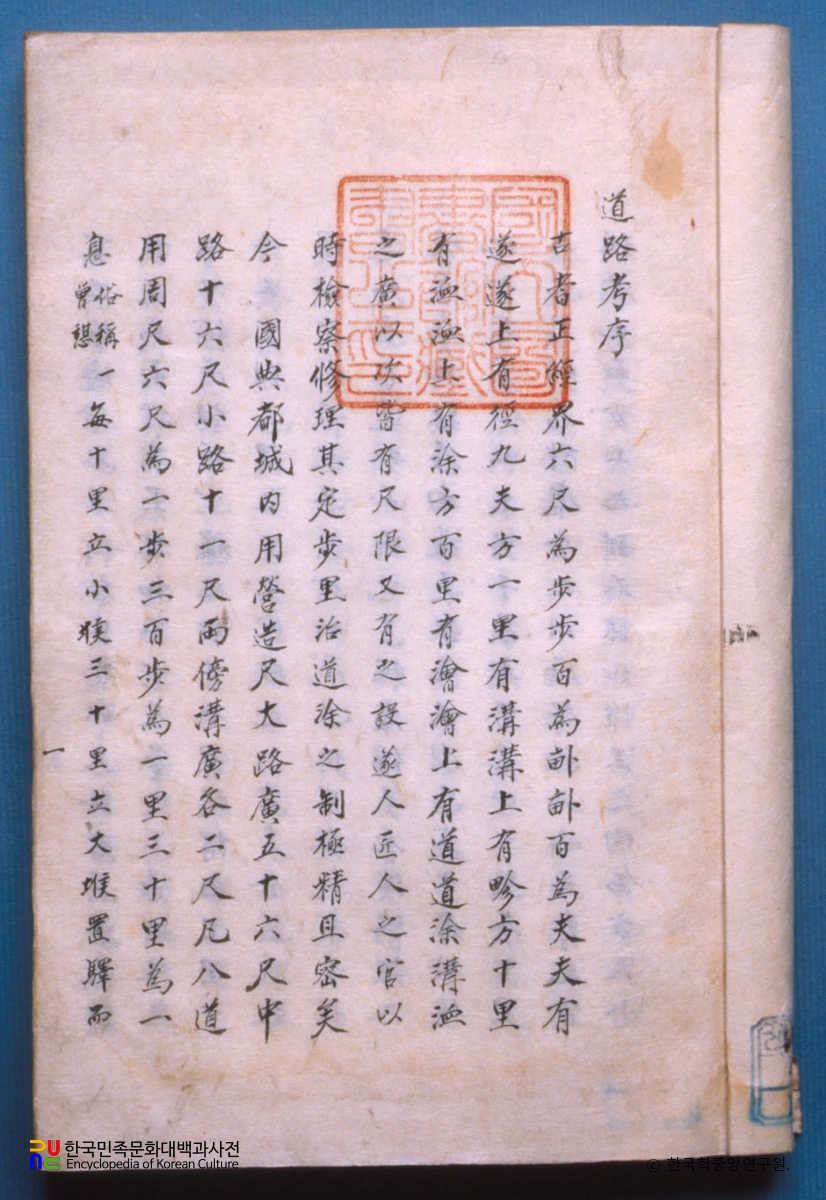 道路考序
古者正經界六尺為步步百為畝畝百為夫夫有
遂遂上有徑九夫方一里有溝溝上有畛方十里
有洫洫上有涂方百里有澮澮上有道道涂溝洫
之廣以次皆有尺限又有之設遂人匠人之官以
時檢察修理其定步里治道涂之制極精且密矣
今 國典都城內用營造尺大路廣五十六尺中
路十六尺小路十一尺兩傍溝廣各二尺凡八道
用周尺六尺為一步三百步為一里三十里為一
息俗稱一曾憩每十里立小堠三十里立大堠置驛而
一
國立圖書館藏書之印
한국민족문화대백과사전
Encyclopedia of Korean Culture
© 한국학중앙연구원.